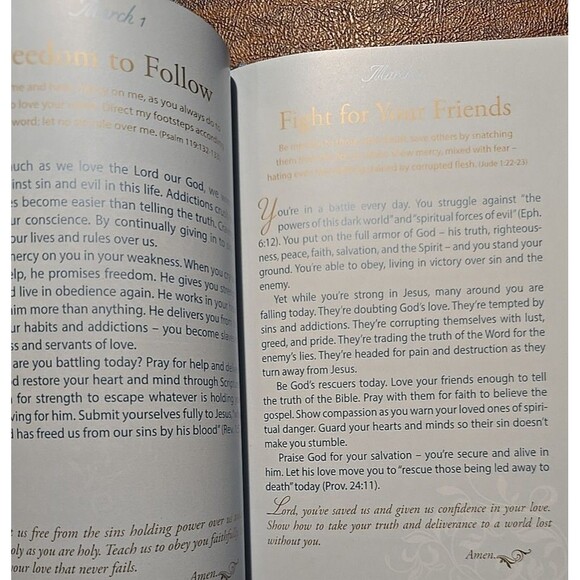 March 1
eedom to Follow
me and on me, as you always do to
love your Direct my footsteps according
word; let no rule over me. (Psalm 119:132-133)
uch as we love the Lord our God, we
inst sin and evil in this life. Addictions
s become easier than telling the truth.
ur conscience. By continually giving in to
our lives and rules over us.
mercy on you in your weakness. When you
elp, he promises freedom. He gives you
d live in obedience again. He works in your
im more than anything. He delivers you from
ur habits and addictions – you become
ss and servants of love.
are you battling today? Pray for help and
d restore your heart and mind through
for strength to escape whatever is holding
ving for him. Submit yourselves fully to Jesus,
d has freed us from our sins by his blood" (Rev.
us free from the sins holding power over us
oly as you are holy. Teach us to obey you faithfully
our love that never fails.
Amen.
March
Fight for Your Friends
Be save others by snatching
them mercy, mixed with fear –
hating by corrupted flesh. (Jude 1:22-23)
You're in a battle every day. You struggle against "the
powers of this dark world" and "spiritual forces of evil" (Eph.
6:12). You put on the full armor of God – his truth, righteous-
ness, peace, faith, salvation, and the Spirit – and you stand your
ground. You're able to obey, living in victory over sin and the
enemy.
Yet while you're strong in Jesus, many around you are
falling today. They're doubting God's love. They're tempted by
sins and addictions. They're corrupting themselves with lust,
greed, and pride. They're trading the truth of the Word for the
enemy's lies. They're headed for pain and destruction as they
turn away from Jesus.
Be God's rescuers today. Love your friends enough to tell
the truth of the Bible. Pray with them for faith to believe the
gospel. Show compassion as you warn your loved ones of spiri-
tual danger. Guard your hearts and minds so their sin doesn't
make you stumble.
Praise God for your salvation – you're secure and alive in
him. Let his love move you to "rescue those being led away to
death" today (Prov. 24:11).
Lord, you've saved us and given us confidence in your love.
Show how to take your truth and deliverance to a world lost
without you.
Amen.